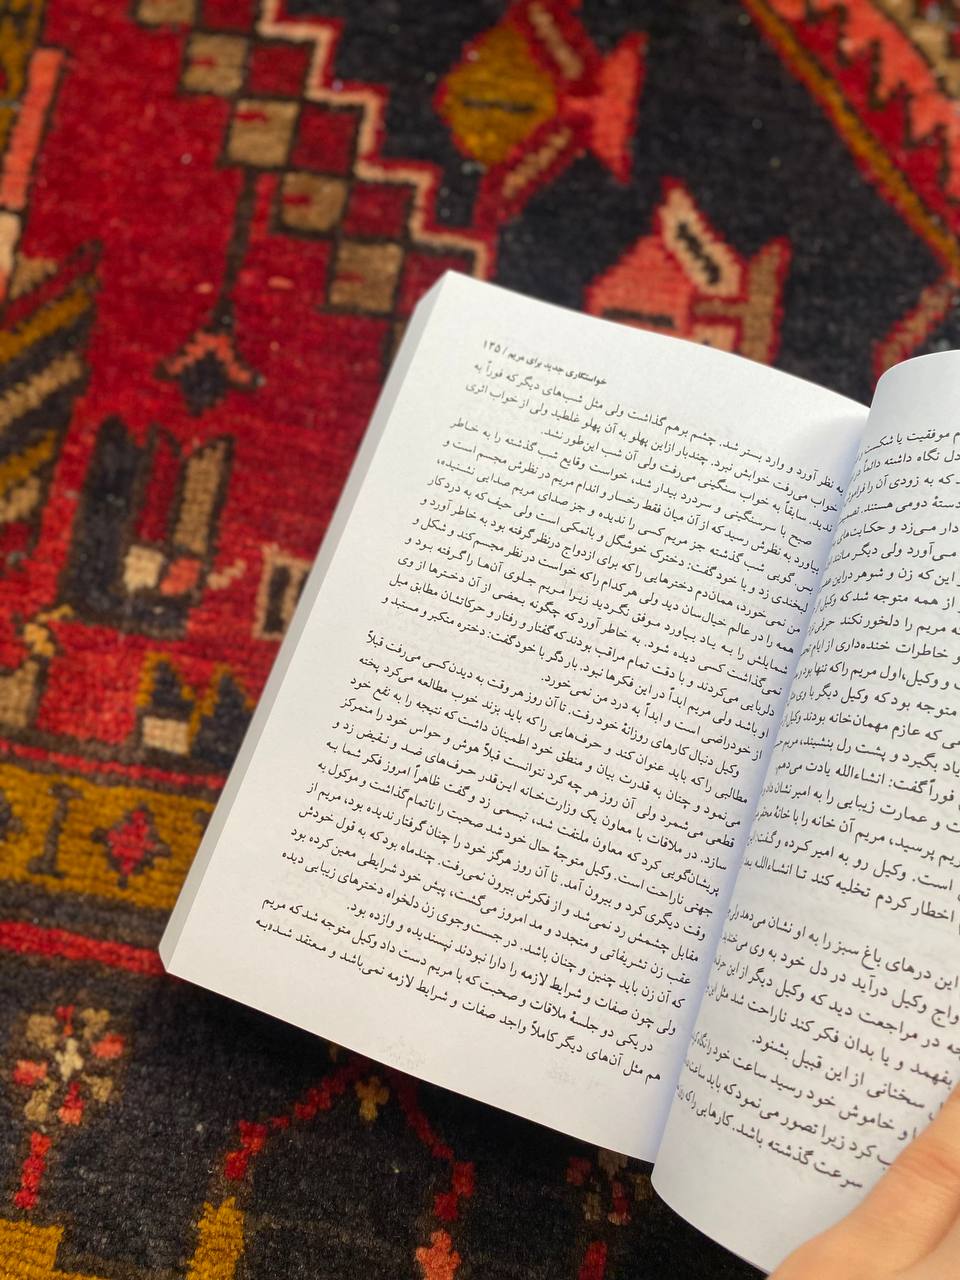 خواستگاری جدید برای مریم / ۱۳۵
به نظر آورد و وارد بستر شد. چشم برهم گذاشت ولی مثل شب‌های دیگر که فوراً به
خواب می‌رفت خوابش نبرد. چندبار ازاین پهلو به آن پهلو غلطید ولی از خواب اثری
ندید. سابقاً به خواب سنگینی می‌رفت ولی آن شب این‌طور نشد.
صبح با سرسنگینی و سردرد بیدار شد، خواست وقایع شب گذشته را به خاطر
بیاورد به نظرش رسید که از آن میان فقط رخسار و اندام مریم در نظرش مجسم است و
بس گویی شب گذشته جز مریم کسی را ندیده و جز صدای مریم صدایی نشنیده،
لبخندی زد و با خود گفت: دخترک خوشگل و بانمکی است ولی حیف که به درد کار
من نمی‌خورد، همان‌دم دخترهایی را که برای ازدواج درنظر گرفته بود به خاطر آورد و
همه را در عالم خیال‌سان دید ولی هرکدام را که خواست در نظر مجسم کند و شکل و
شمایلش را به یاد بیاورد موفق نگردید زیرا مریم جلوی آن‌ها را گرفته بود و
نمی‌گذاشت کسی دیده شود. به خاطر آورد که چگونه بعضی از آن دخترها از وی
دلربایی می‌کردند و با دقت تمام مراقب بودند که گفتار و رفتار و حرکاتشان مطابق میل
او باشد ولی مریم ابداً در این فکرها نبود. باردگر با خود گفت: دختره متکبر و مستبد و
از خودراضی است و ابداً به درد من نمی‌خورد.
وکیل دنبال کارهای روزانهٔ خود رفت. تا آن روز هر وقت به دیدن کسی می‌رفت قبلاً
مطالبی را که باید عنوان کند و حرف‌هایی را که باید بزند خوب مطالعه می‌کرد پخته
می‌نمود و چنان به قدرت بیان و منطق خود اطمینان داشت که نتیجه را به نفع خود
قطعی می‌شمرد ولی آن روز هر چه کرد نتوانست قبلاً هوش و حواس خود را متمرکز
سازد. در ملاقات با معاون یک وزارت‌خانه این‌قدر حرف‌های ضد و نقیض زد و
پریشان‌گویی کرد که معاون ملتفت شد، تبسمی زد و گفت ظاهراً امروز فکر شما به
جهتی ناراحت است. وکیل متوجهٔ حال خود شد صحبت را ناتمام گذاشت و موکول به
وقت دیگری کرد و بیرون آمد. تا آن روز هرگز خود را چنان گرفتار ندیده بود، مریم از
مقابل چشمش رد نمی‌شد و از فکرش بیرون نمی‌رفت. چندماه بود که به قول خودش
عقب زن تشریفاتی و متجدد و مد امروز می‌گشت، پیش خود شرایطی معین کرده بود
که آن زن باید چنین و چنان باشد. در جست‌وجوی زن دلخواه دخترهای زیبایی دیده
ولی چون صفات و شرایط لازمه را دارا نبودند نپسندیده و وازده بود.
در یکی دو جلسهٔ ملاقات و صحبت که با مریم دست داد وکیل متوجه شد که مریم
هم مثل آن‌های دیگر کاملاً واجد صفات و شرایط لازمه نمی‌باشد و معتقد شد به
موفقیت یا شکست
دل نگاه داشته دائماً
که به زودی آن را فراموش
دستهٔ دومی هستند.
دار می‌زد و حکایت‌های
می‌آورد ولی دیگر مانند
این که زن و شوهر در این
از همه متوجه شد که وکیل
که مریم را دلخور نکند حرفی
و خاطرات خنده‌داری از ایام
و وکیل، اول مریم را که تنها بود
متوجه بود که وکیل دیگر با وی
می که عازم مهمان‌خانه بودند وکیل از
یاد بگیرد و پشت رل بنشیند، مریم
فوراً گفت: انشاءالله یادت می‌دهم.
ت و عمارت زیبایی را به امیر نشان داد
ریم پرسید، مریم آن خانه را با خانهٔ
است. وکیل رو به امیر کرده و گفت: این
اخطار کردم تخلیه کند تا انشاءالله بعد
این درهای باغ سبز را به او نشان می‌دهد ولی
واج وکیل درآید در دل خود به وی می‌خندید
جه در مراجعت دید که وکیل دیگر از این
بفهمد و یا بدان فکر کند ناراحت شد مثل این
سخنانی از این قبیل بشنود.
و خاموش خود رسید ساعت خود را نگاه
ب کرد زیرا تصور می‌نمود که باید ساعت
سرعت گذشته باشد. کارهایی را که